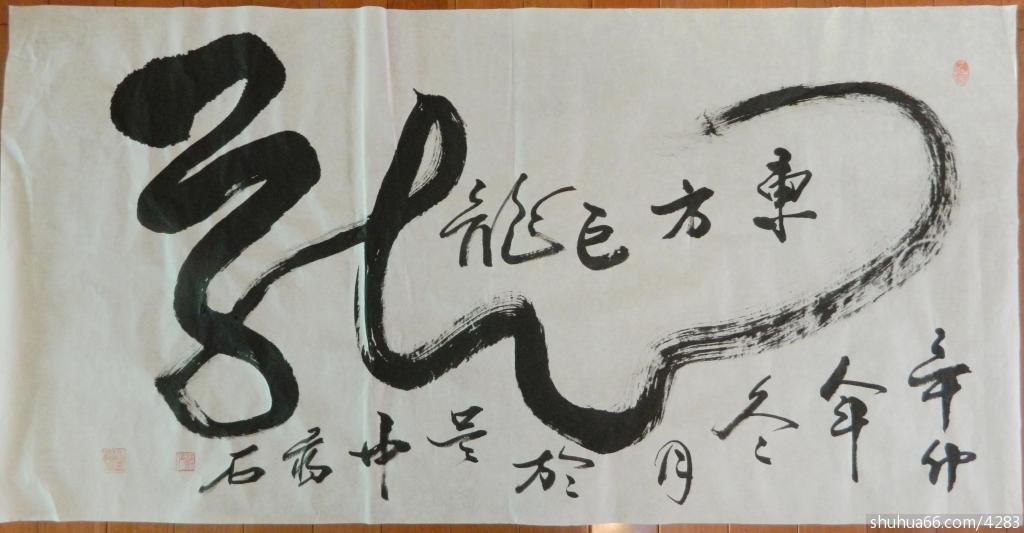 龍
東方巨龍
辛卯年冬月於吴中
石
shuhua66.com/4283